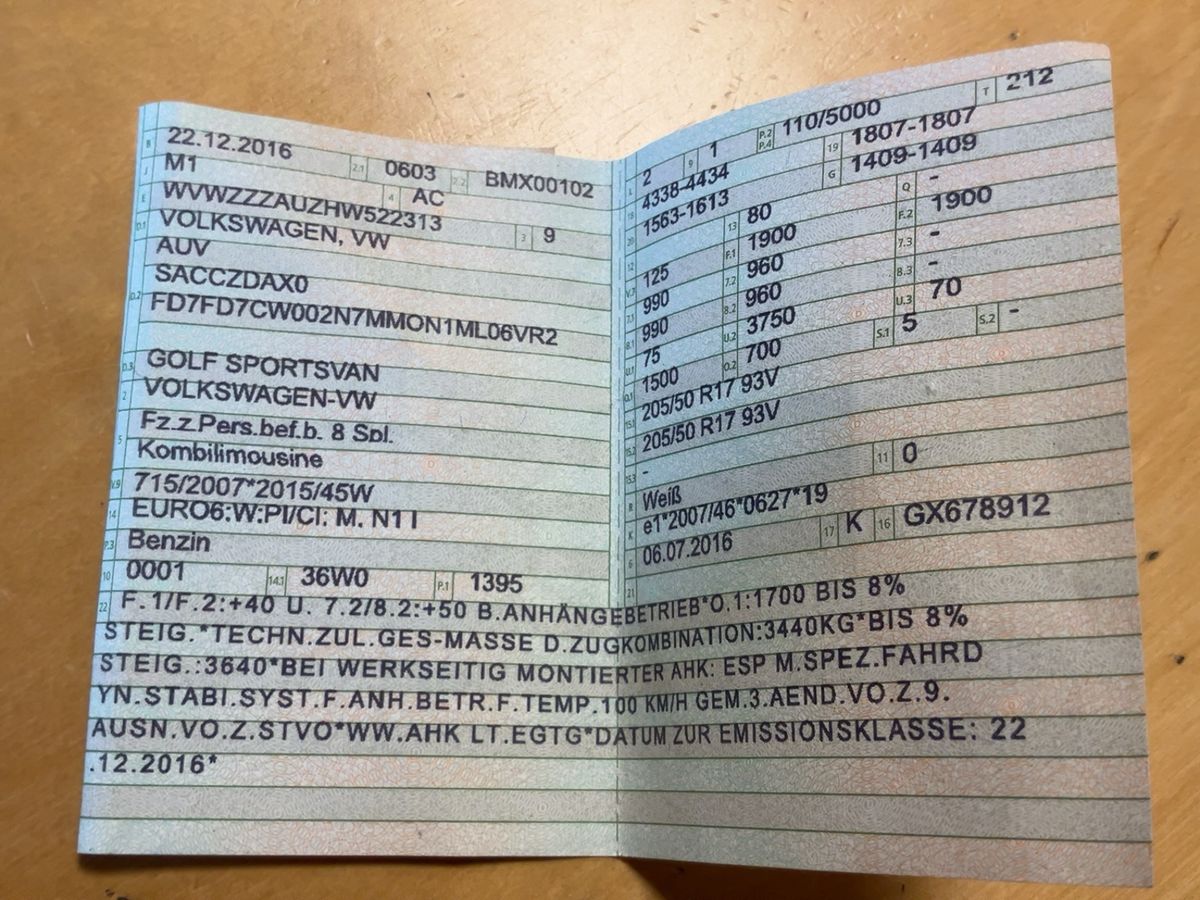 B 22.12.2016 2.1 0603 2.2 BMX00102
J M1 4 AC
E WVWZZZAUZHW522313 3 9
D.1 VOLKSWAGEN, VW
AUV
D.2 SACCZDAX0
FD7FD7CW002N7MMON1ML06VR2
D.3 GOLF SPORTSVAN
2 VOLKSWAGEN-VW
5 Fz.z.Pers.bef.b. 8 Spl.
Kombilimousine
V.9 715/2007*2015/45W
14 EURO6:W:PI/CI: M. N1 I
P.3 Benzin
10 0001 14.1 36W0 P.1 1395
L 2 9 1 P.2 P.4 110/5000 T 212
18 4338-4434 19 1807-1807
20 1563-1613 G 1409-1409
12 13 80 Q -
V.7 125 F.1 1900 F.2 1900
7.1 990 7.2 960 7.3 -
8.1 990 8.2 960 8.3 -
U.1 75 U.2 3750 U.3 70
O.1 1500 O.2 700 S.1 5 S.2 -
15.1 205/50 R17 93V
15.2 205/50 R17 93V
15.3 -
R Weiß 11 0
K e1*2007/46*0627*19
6 06.07.2016 17 K 16 GX678912
21
22 F.1/F.2:+40 U. 7.2/8.2:+50 B.ANHÄNGEBETRIEB*O.1:1700 BIS 8%
STEIG.*TECHN.ZUL.GES-MASSE D.ZUGKOMBINATION:3440KG*BIS 8%
STEIG.:3640*BEI WERKSEITIG MONTIERTER AHK: ESP M.SPEZ.FAHRD
YN.STABI.SYST.F.ANH.BETR.F.TEMP.100 KM/H GEM.3.AEND.VO.Z.9.
AUSN.VO.Z.STVO*WW.AHK LT.EGTG*DATUM ZUR EMISSIONSKLASSE: 22
.12.2016*